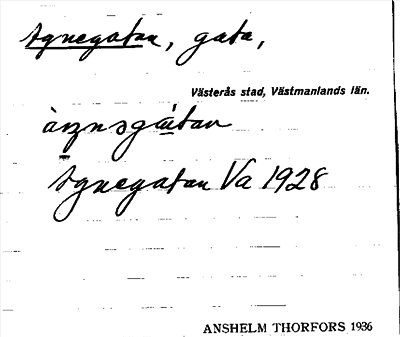 Agnegatan, gata,
Västerås stad, Västmanlands län.
Agnegatan Va 1928
ANSHELM THORFORS 1936